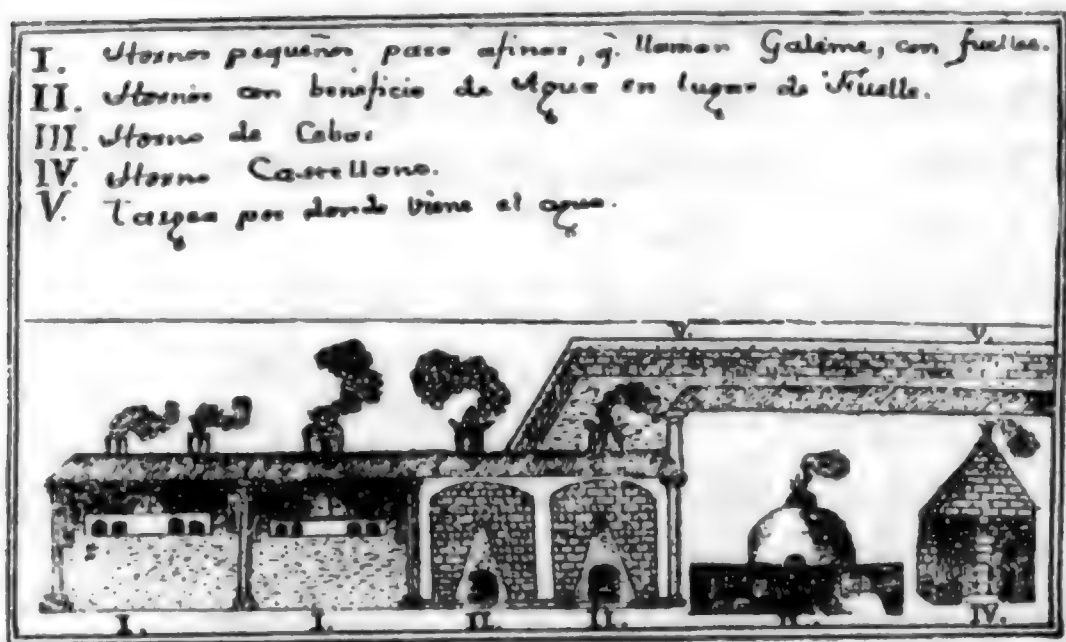 I. Hornos pequeños para afinar, q̃. llaman Galeme, con fuelles.
II. Hornos con beneficio de Agua en lugar de Fuelle.
III. Horno de Cebar
IV. Horno Castellano.
V. Targea por donde viene el agua.
V. V.
I. I. II. II. IV.